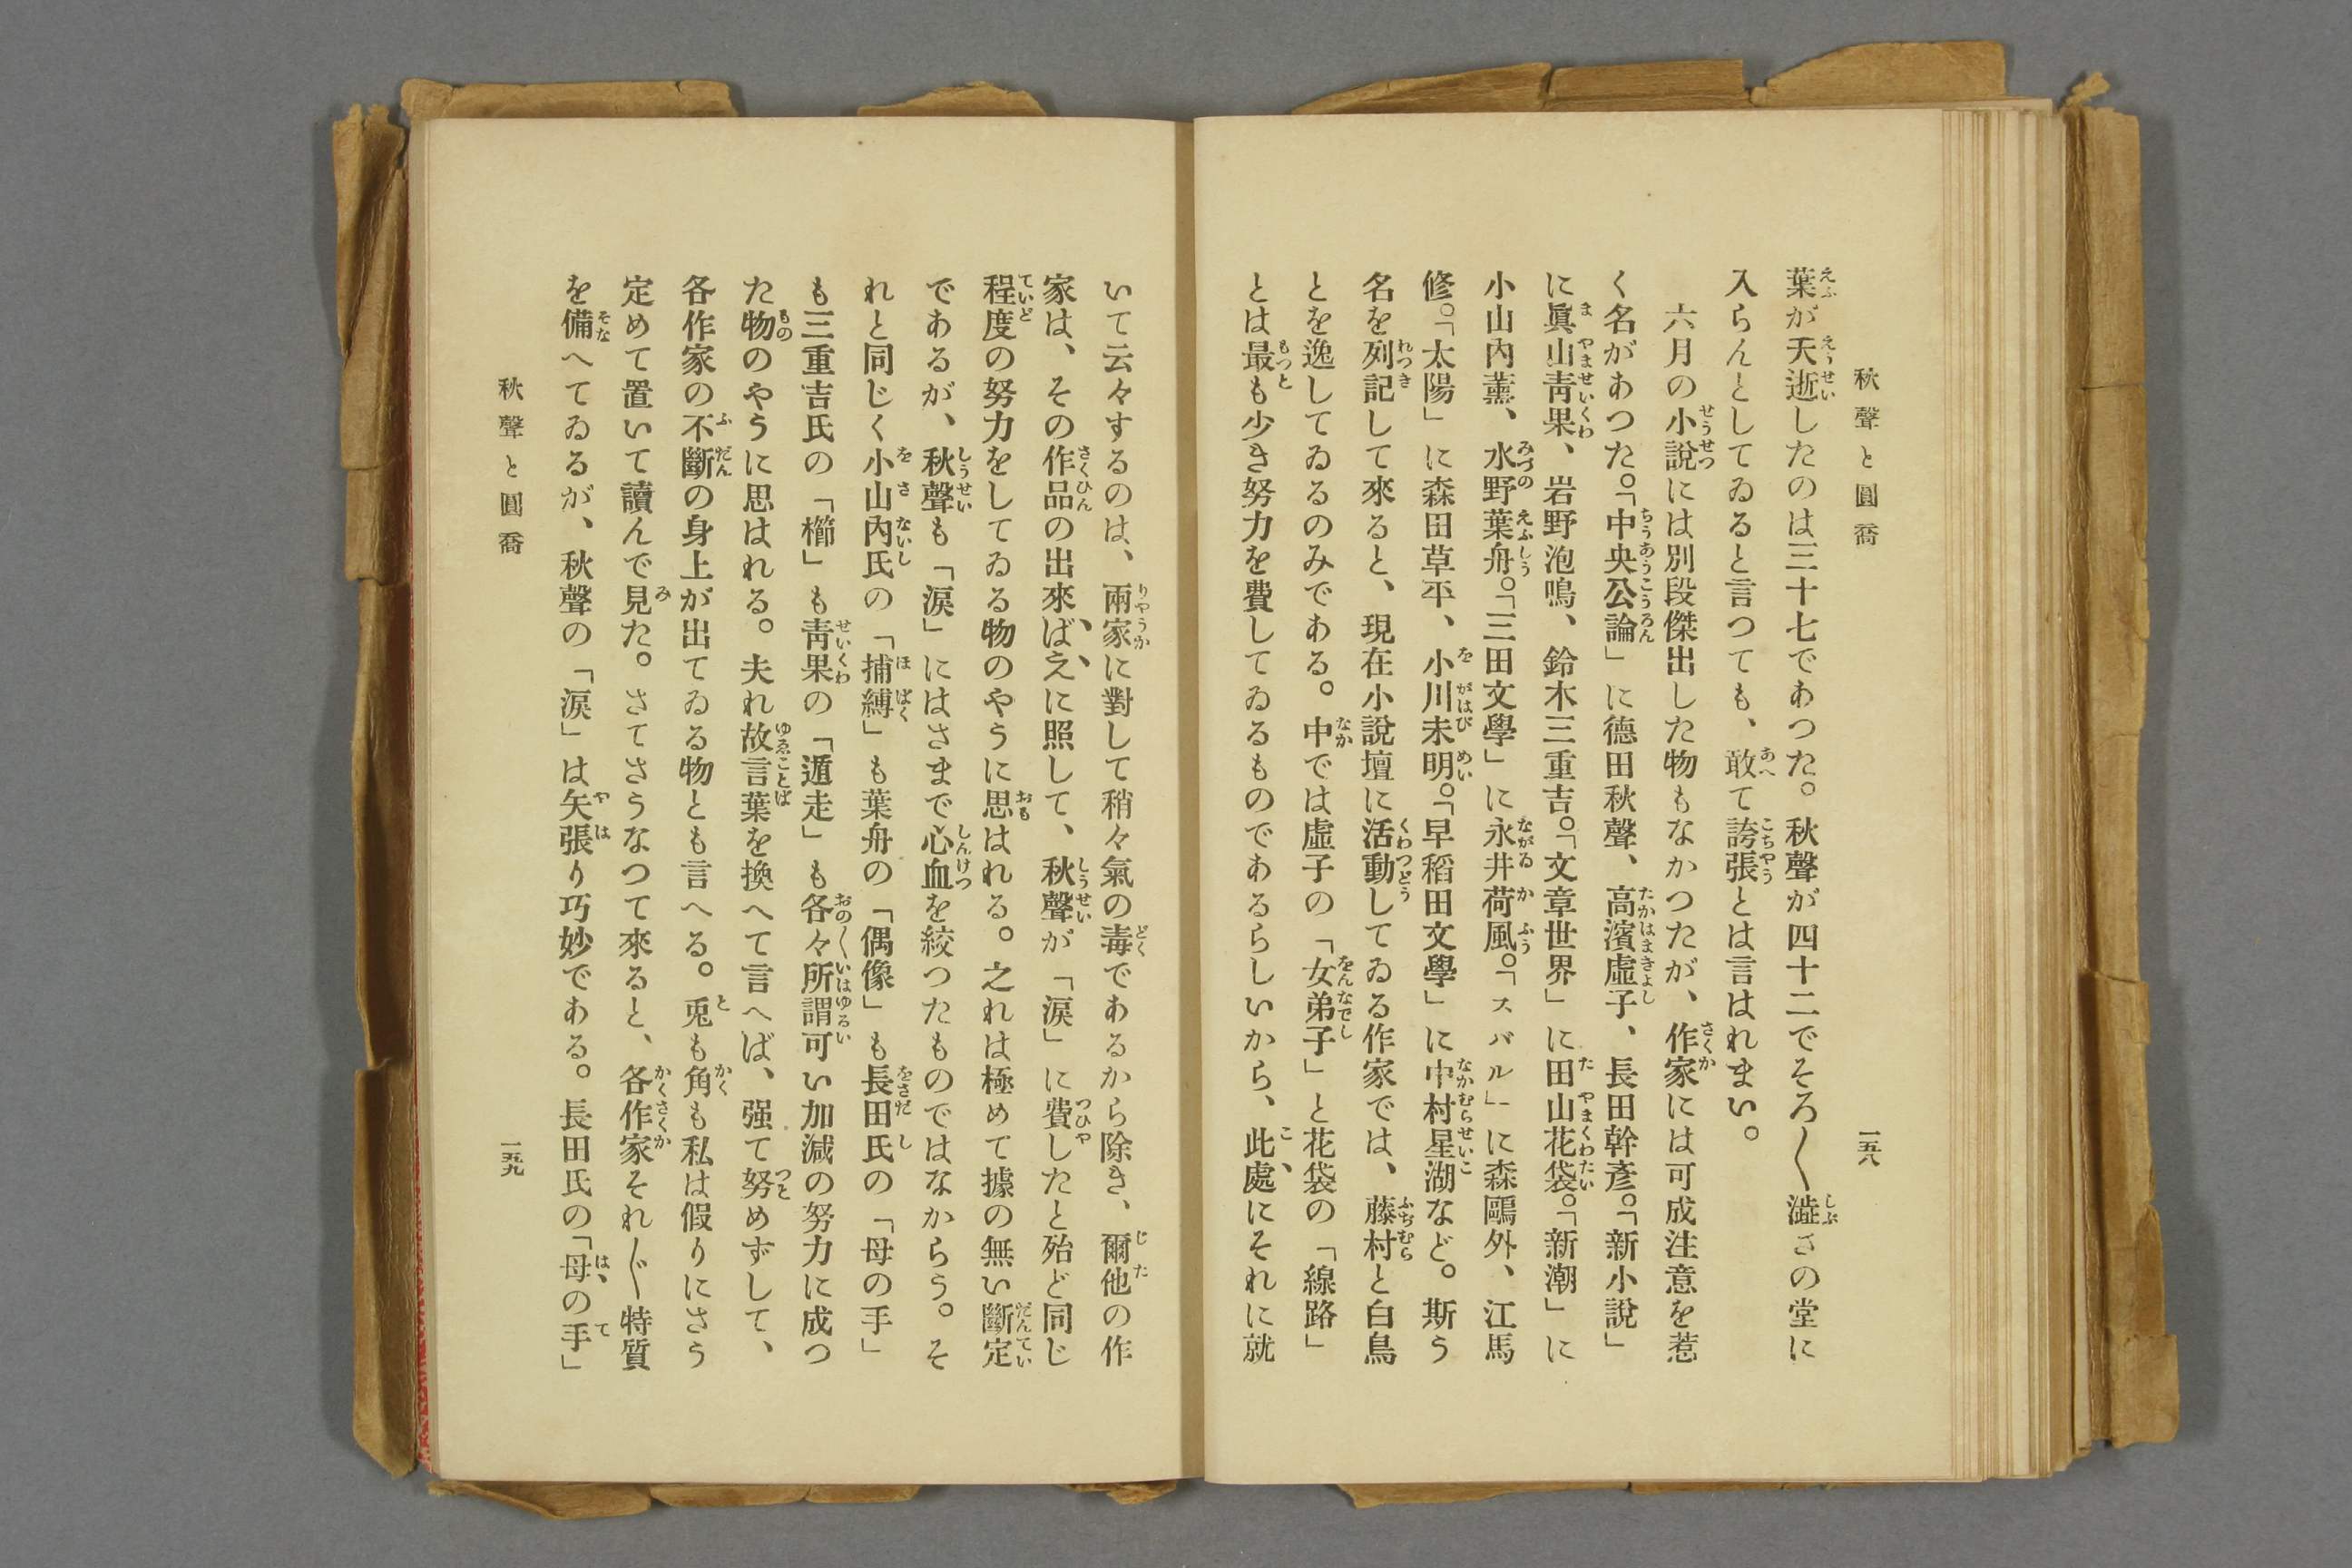 秋聲と圓喬
一五八
葉が夭逝したのは三十七であつた。秋聲が四十二でそろ〳〵澁さの堂に
入らんとしてゐると言つても、敢て誇張とは言はれまい。
六月の小說には別段傑出した物もなかつたが、作家には可成注意を惹
く名があつた。「中央公論」に德田秋聲、高濱虛子、長田幹彥。「新小說」
に眞山靑果、岩野泡鳴、鈴木三重吉。「文章世界」に田山花袋。「新潮」に
小山內薰、水野葉舟。「三田文學」に永井荷風。「スバル」に森鷗外、江馬
修。「太陽」に森田草平、小川未明。「早稻田文學」に中村星湖など。斯う
名を列記して來ると、現在小說壇に活動してゐる作家では、藤村と白鳥
とを逸してゐるのみである。中では虛子の「女弟子」と花袋の「線路」
とは最も少き努力を費してゐるものであるらしいから、此處にそれに就
いて云々するのは、兩家に對して稍々氣の毒であるから除き、爾他の作
家は、その作品の出來ばえに照して、秋聲が「淚」に費したと殆ど同じ
程度の努力をしてゐる物のやうに思はれる。之れは極めて據の無い斷定
であるが、秋聲も「淚」にはさまで心血を絞つたものではなからう。そ
れと同じく小山內氏の「捕縛」も葉舟の「偶像」も長田氏の「母の手」
も三重吉氏の「櫛」も靑果の「遁走」も各々所謂可い加減の努力に成つ
た物のやうに思はれる。夫れ故言葉を換へて言へば、强て努めずして、
各作家の不斷の身上が出てゐる物とも言へる。兎も角も私は假りにさう
定めて置いて讀んで見た。さてさうなつて來ると、各作家それ〴〵特質
を備へてゐるが、秋聲の「淚」は矢張り巧妙である。長田氏の「母の手」
秋聲と圓喬
一五九